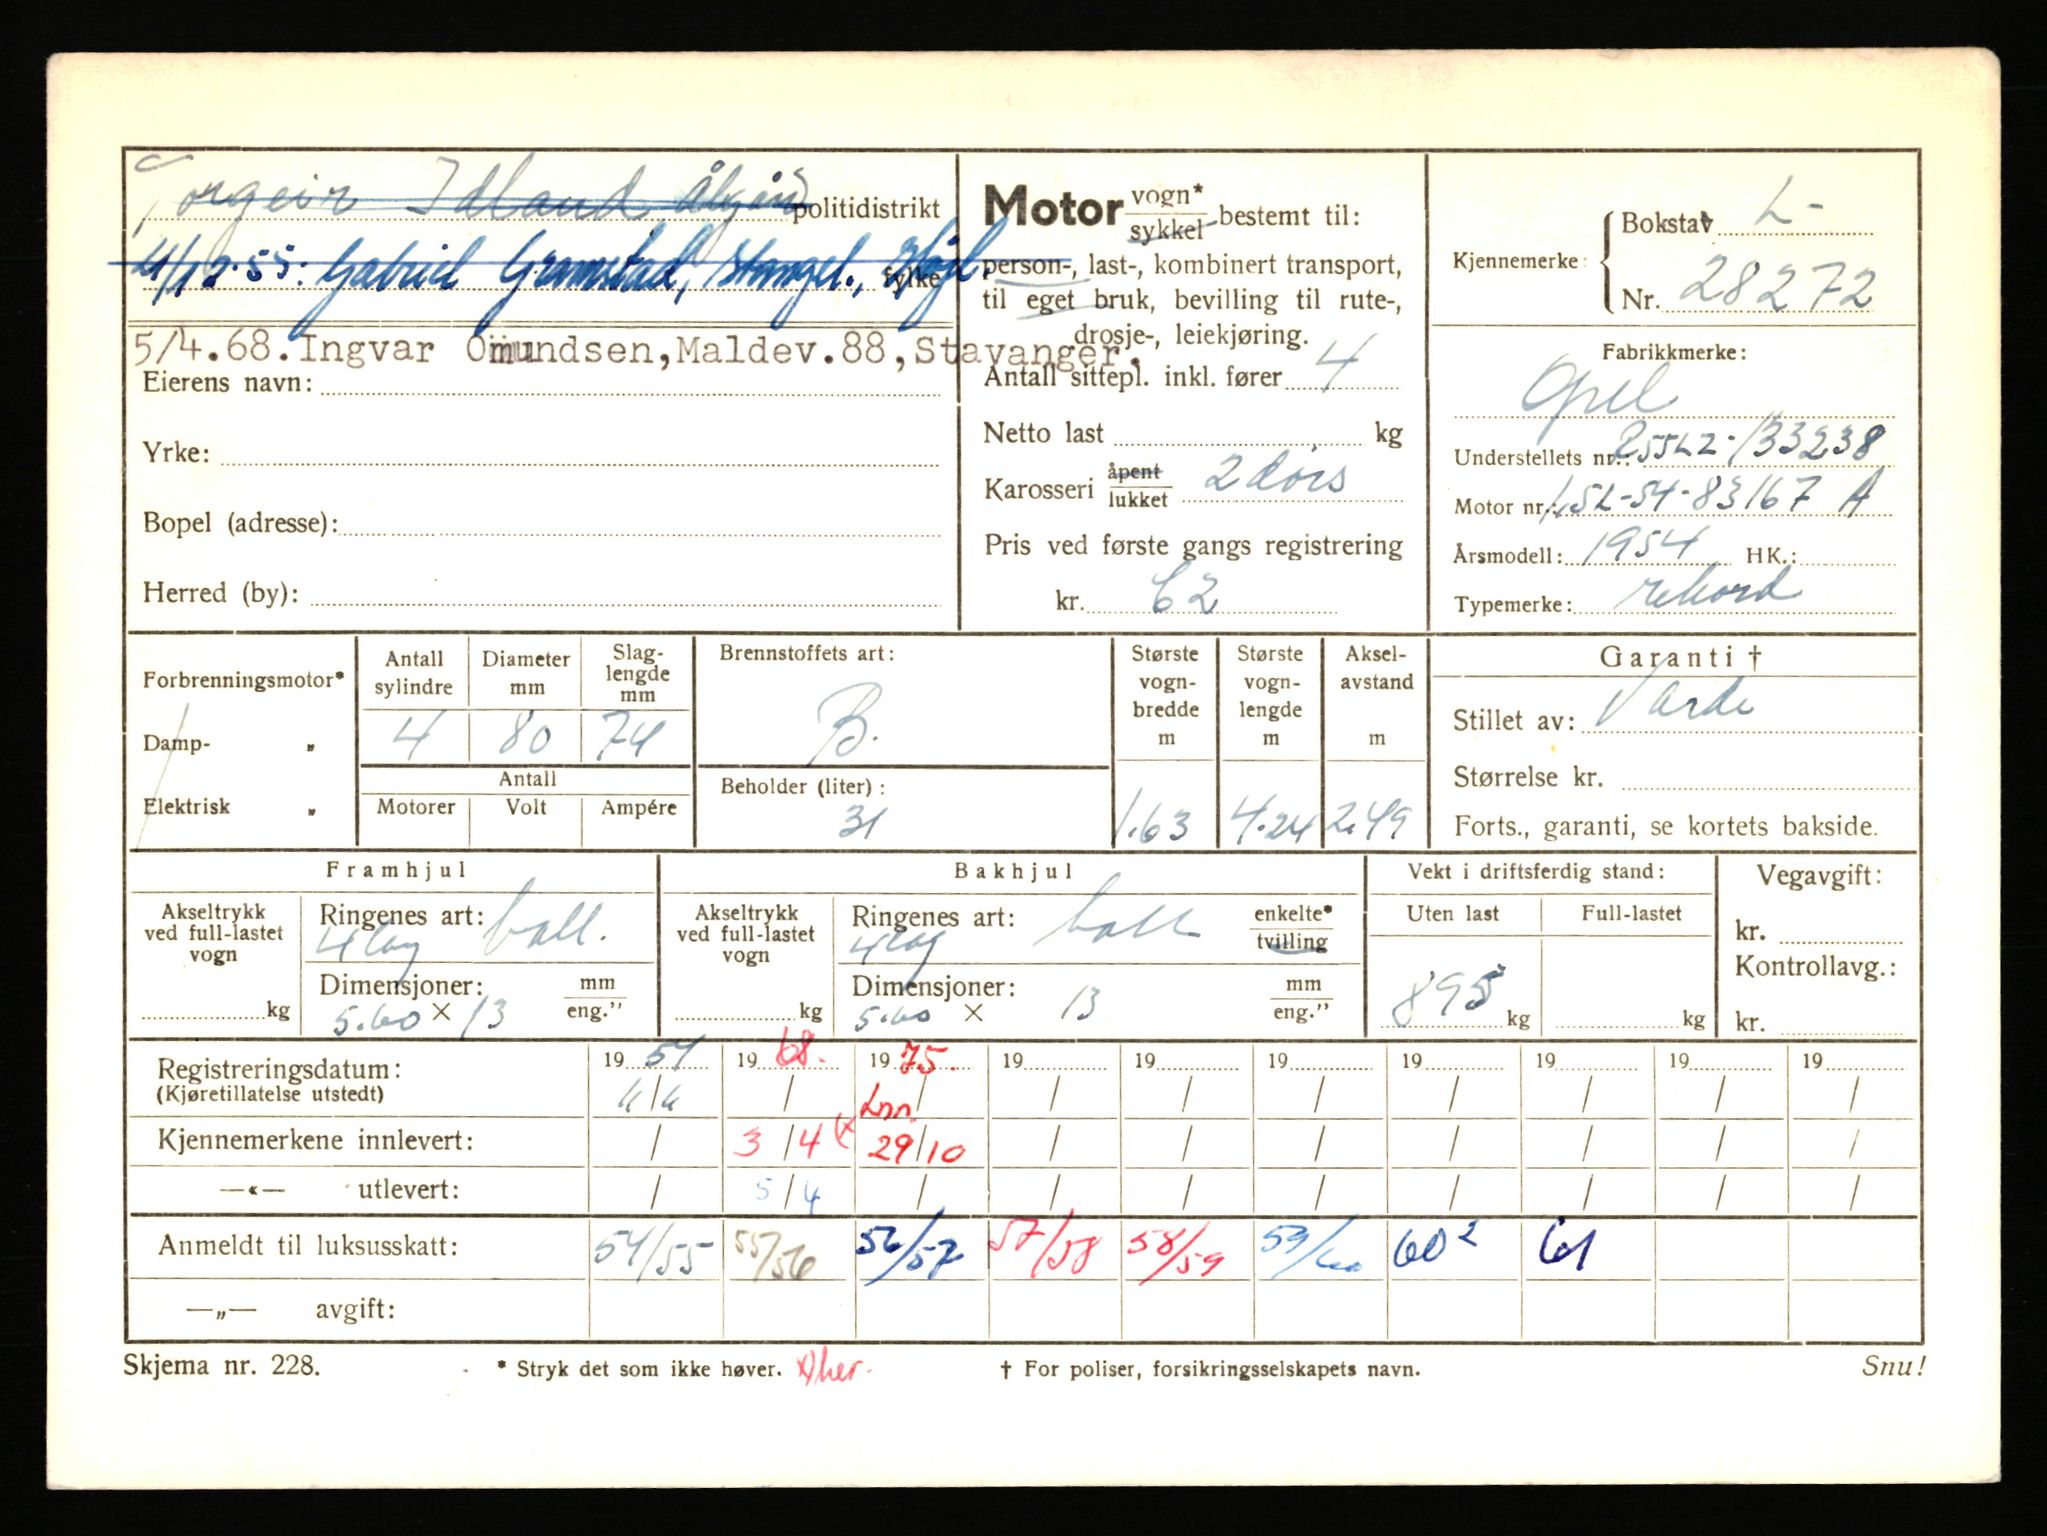 Torgeir Idland Ålgård politidistrikt
21/12.55: Gabriel Gramstad, Stangel., fylke
5/4.68. Ingvar Omundsen, Maldev.88, Stavanger.
Eierens navn:
Yrke:
Bopel (adresse):
Herred (by):
Motor vogn* sykkel bestemt til:
person-, last-, kombinert transport,
til eget bruk, bevilling til rute-,
drosje-, leiekjøring.
Antall sittepl. inkl. fører 4
Netto last kg
Karosseri åpent lukket 2 dørs
Pris ved første gangs registrering
kr. 62
Kjennemerke: Bokstav L-
Nr. 28272
Fabrikkmerke:
Opel
Understellets nr.: R55LZ-133238
Motor nr.: 1.5L-54-83167 A
Årsmodell: 1954 HK.:
Typemerke: rekord
Forbrenningsmotor*
Damp- „
Elektrisk „
Antall sylindre 4
Diameter mm 80
Slag-lengde mm 74
Antall
Motorer Volt Ampére
Brennstoffets art:
B.
Beholder (liter):
31
Største vogn-bredde m 1.63
Største vogn-lengde m 4.24
Aksel-avstand m 2.49
Garanti †
Stillet av: Varde
Størrelse kr.
Forts., garanti, se kortets bakside.
Framhjul
Akseltrykk ved full-lastet vogn kg
Ringenes art: 4 lag ball.
Dimensjoner: 5.60 × 13 mm eng."
Bakhjul
Akseltrykk ved full-lastet vogn kg
Ringenes art: 4 lag ball enkelte* tvilling
Dimensjoner: 5.60 × 13 mm eng."
Vekt i driftsferdig stand:
Uten last Full-lastet
895 kg kg
Vegavgift:
kr.
Kontrollavg.:
kr.
Registreringsdatum: 19 54 19 68. 19 75. 19 19 19 19 19 19 19
(Kjøretillatelse utstedt) / / / / / / / / /
Lnn.
Kjennemerkene innlevert: / 3/4 (x 29/10 / / / / / / /
—«— utlevert: / 5/4 / / / / / / / /
Anmeldt til luksusskatt: 54/55 55/56 56/57 57/58 58/59 59/60 60² 61
—„— avgift:
Skjema nr. 228. * Stryk det som ikke høver. x) her. † For poliser, forsikringsselskapets navn. Snu!